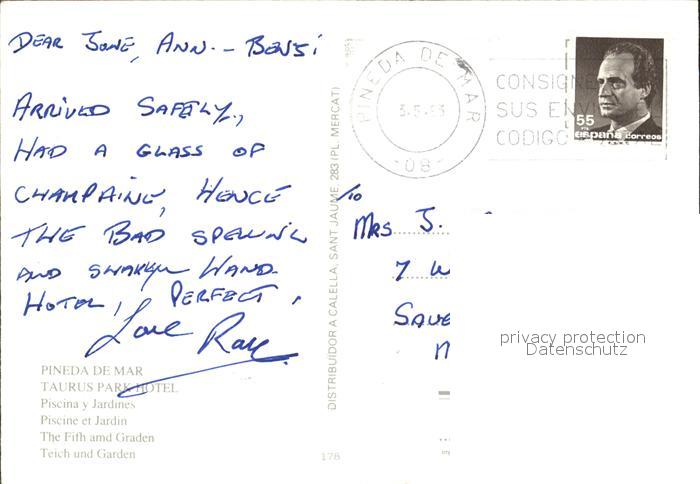 DEAR JUNE, ANN. - BENJI
ARRIVED SAFELY.,
HAD A GLASS OF
CHAMPAINE, HENCE
THE BAD SPELLING
AND SHAKEY HAND.
HOTEL, PERFECT,
Love
PINEDA DE MAR
TAURUS PARK HOTEL
Piscina y Jardines
Piscine et Jardin
The Fifh amd Graden
Teich und Garden
178
DISTRIBUIDOR A CALELLA, SANT JAUME, 283 (PL. MERCAT)
PINEDA DE MAR
-08-
CONSIGNE
SUS ENV
CODIGO
55
PTA
España correos
MRS J.
7 W
SAVE
privacy protection
Datenschutz